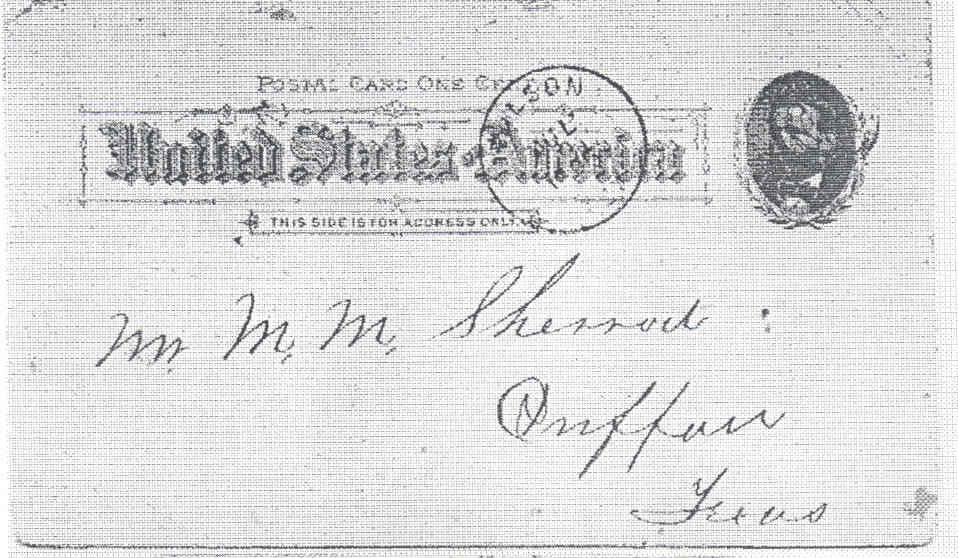 POSTAL CARD ONE CE
United States of America
WILSON
THIS SIDE IS FOR ADDRESS ONLY.
Mr. M. M. Sherrod :
Duffau
Texas